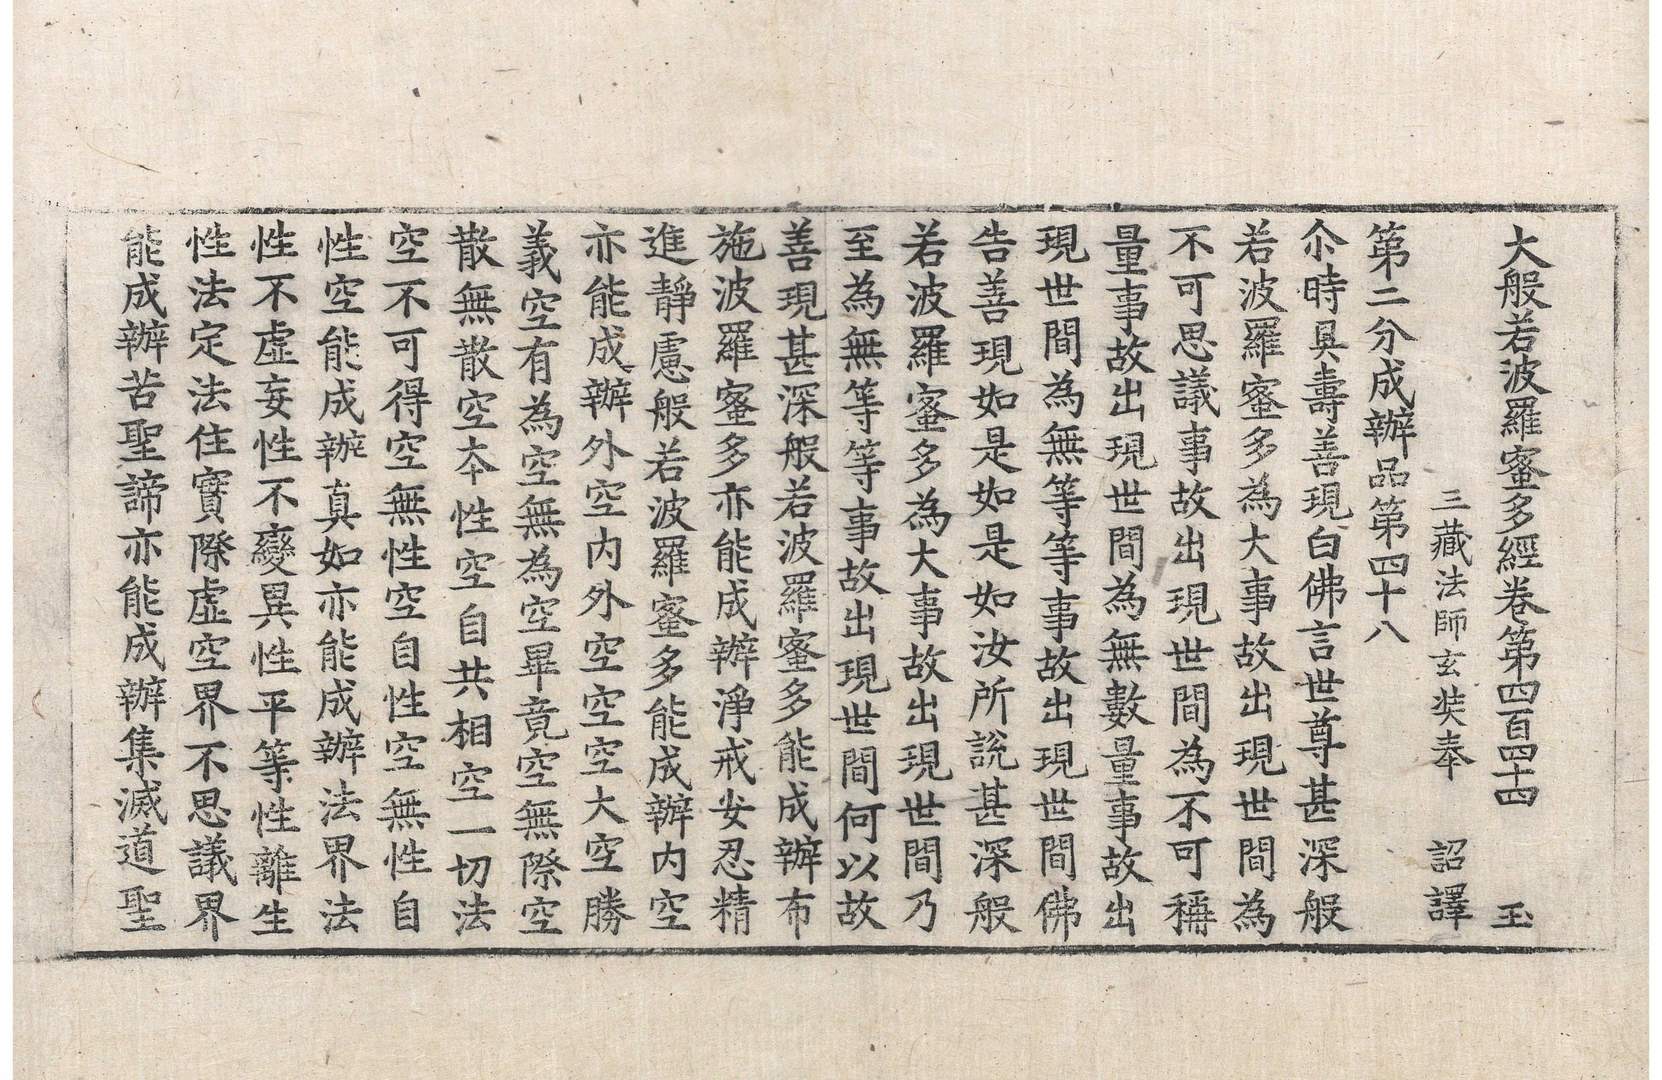 大般若波羅蜜多經卷第四百四十四　玉
三藏法師玄奘奉　詔譯
第二分成辦品第四十八
尒時具壽善現白佛言世尊甚深般
若波羅蜜多為大事故出現世間為
不可思議事故出現世間為不可稱
量事故出現世間為無數量事故出
現世間為無等等事故出現世間佛
告善現如是如是如汝所說甚深般
若波羅蜜多為大事故出現世間乃
至為無等等事故出現世間何以故
善現甚深般若波羅蜜多能成辦布
施波羅蜜多亦能成辦淨戒安忍精
進靜慮般若波羅蜜多能成辦內空
亦能成辦外空內外空空空大空勝
義空有為空無為空畢竟空無際空
散無散空夲性空自共相空一切法
空不可得空無性空自性空無性自
性空能成辦真如亦能成辦法界法
性不虛妄性不變異性平等性離生
性法定法住實際虛空界不思議界
能成辦苦聖諦亦能成辦集滅道聖